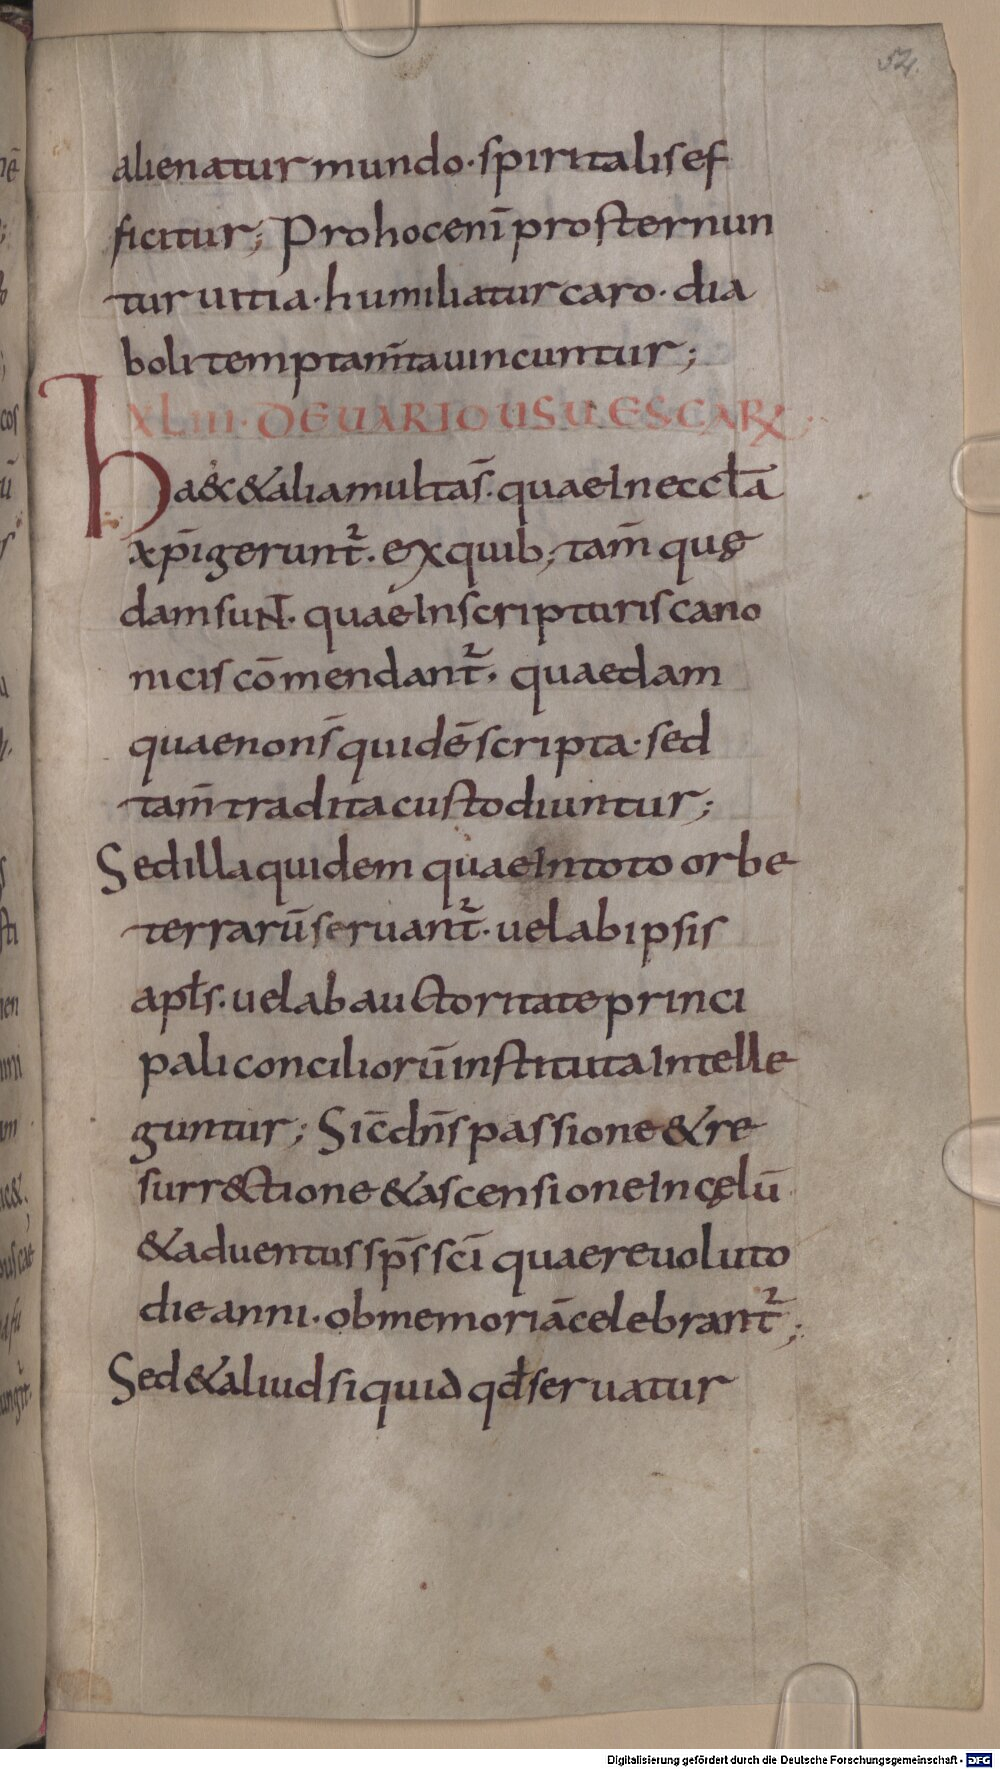 54.
alienatur mundo · spiritalis ef
ficitur; Pro hoc enī prosternun
tur uitia · humiliatur caro · dia
boli temptam̄ta uincuntur;
XLIII · DE UARIO USU ESCARꝜ
Haec & alia multa s̄. quae In ecclā
xp̄i gerunt᷑. ex quib; tam̄ quę
dam suNT. quae In scripturis cano
nicis cōmendant᷑. quaedam
quae non s̄ quidē scripta · sed
tam̄ tradita custodiuntur;
Sed illa quidem quae In toto orbe
terrarū seruant᷑. uel ab ipsis
apłs. uel ab auctoritate princi
pali conciliorū instituta Intelle
guntur; Sic̄ dn̄s passione & re
surrectione & ascensione In cęlū
& aduentus sp̄s sc̄i quae reuoluto
die anni · ob memoriā celebrant᷑;
Sed & aliud si quid qđ seruatur
Digitalisierung gefördert durch die Deutsche Forschungsgemeinschaft - DFG